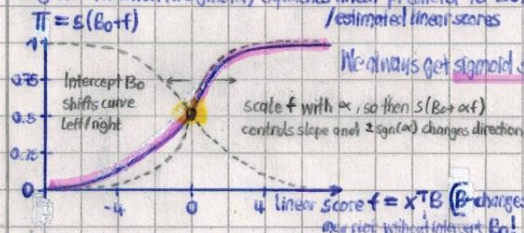 π = s(β₀+f)
/estimated linear scores
We always get sigmoid
1
0.75
Intercept β₀
shifts curve
left/right
scale f with α, so then s(β₀+αf)
controls slope and ± sgn(α) changes direction
0.5
0.25
0
-4 0 4 linear score f = xᵀβ (β-changes
without intercept β₀!